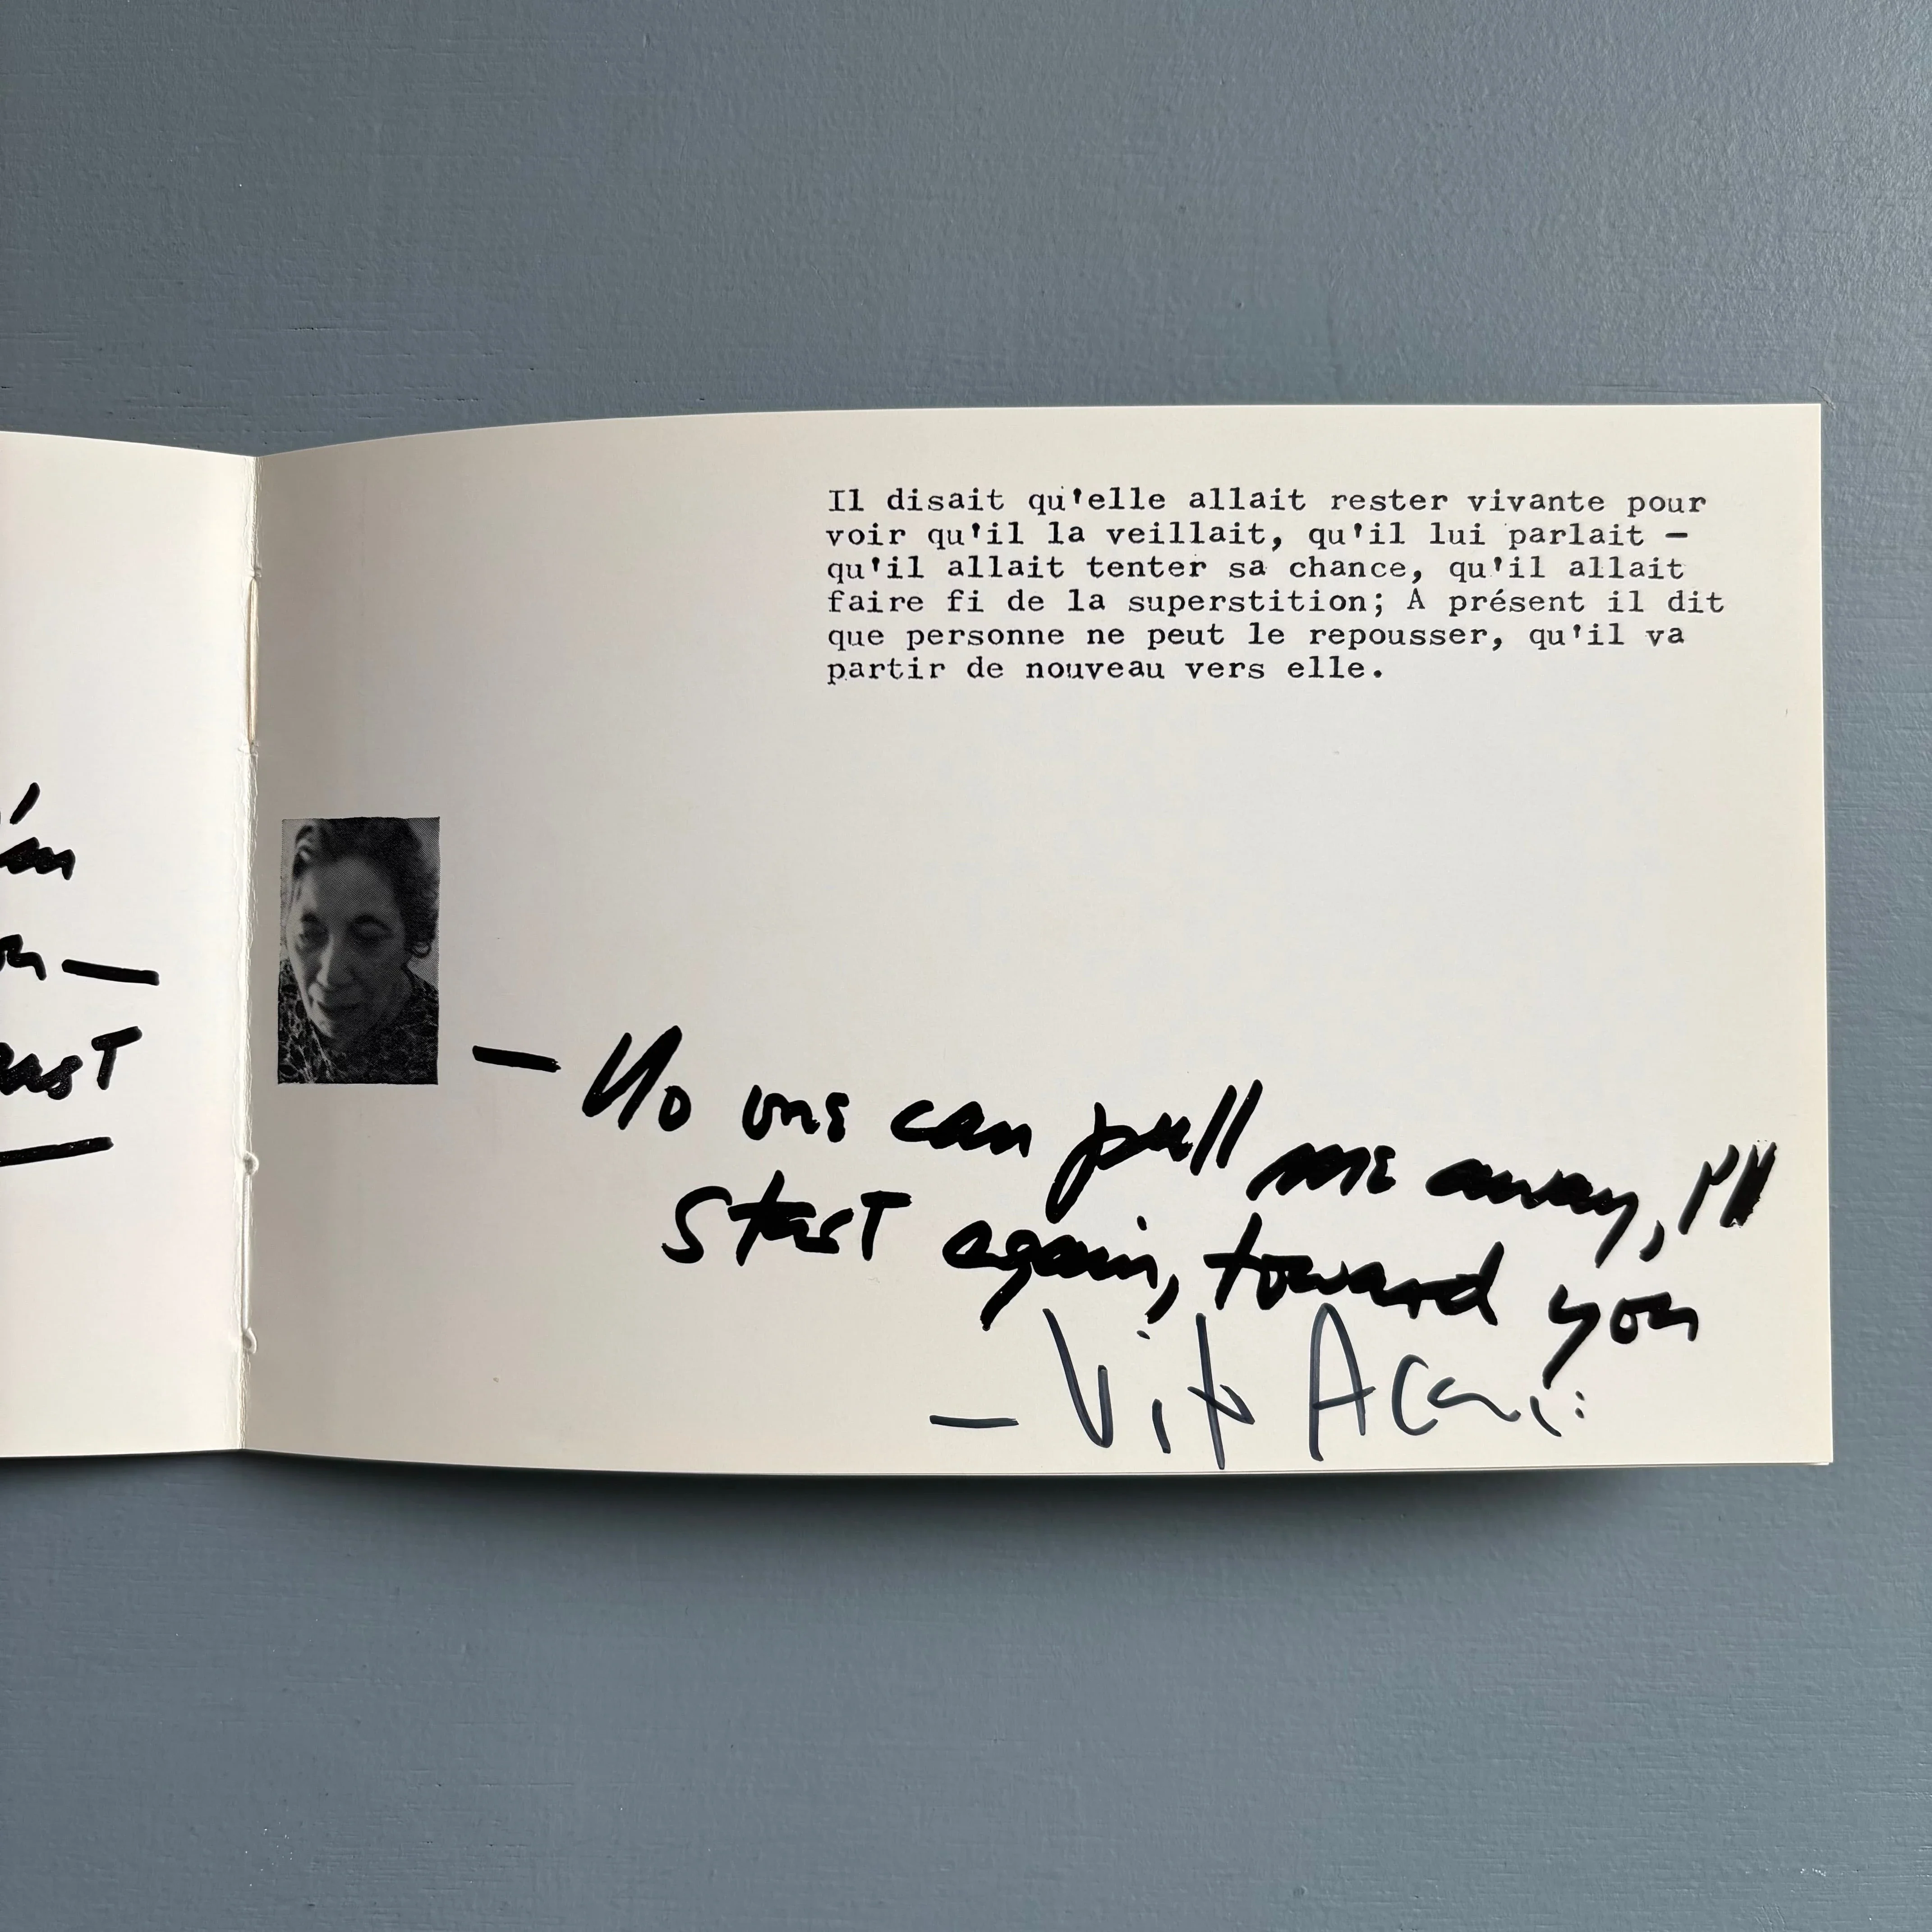 Il disait qu'elle allait rester vivante pour
voir qu'il la veillait, qu'il lui parlait –
qu'il allait tenter sa chance, qu'il allait
faire fi de la superstition; A présent il dit
que personne ne peut le repousser, qu'il va
partir de nouveau vers elle.
— No one can pull me away, I'll
start again, toward you
— Vito Acconci